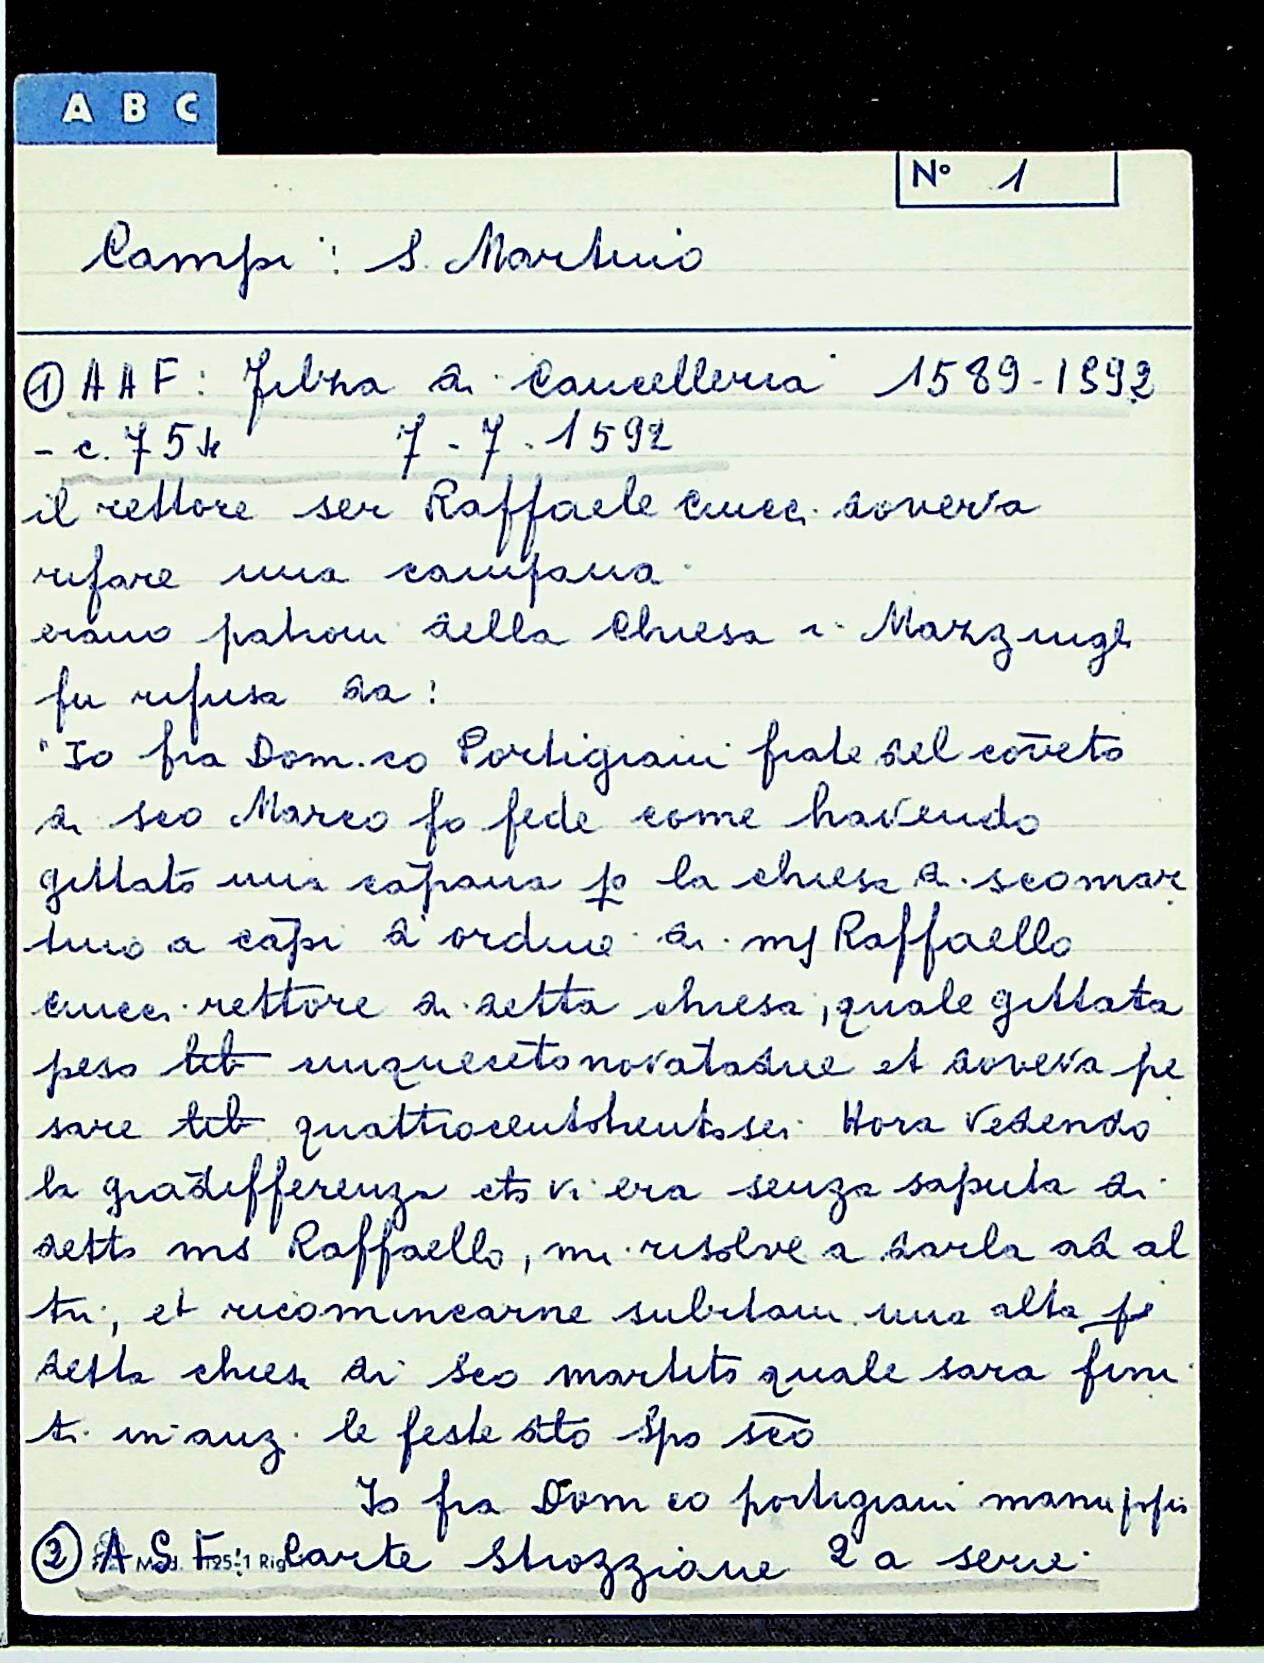 A B C
N° 1
Campi: S. Martino
① A A F: Filza di Cancelleria 1589-1592
- c. 75 7-7-1592
il rettore ser Raffaele Cucci doveva
rifare una campana
erano patroni della Chiesa i Mazzinghi
fu rifusa da:
"Io fra Dom.co Portigiani frate del cōveto
di sco Marco fo fede come havendo
gittato una cāpana p la chiesa di sco mar
tino a cāpi d'ordine di ms Raffaello
cucci rettore di detta chiesa, quale gittata
peso lib cinquecētonovātadue et doveva pe
sare lib quattrocentotrentasei Hora Vedendo
la grādifferenza vi era senza saputa di
detto ms Raffaello, mi risolve a darla ad al
tri, et ricominciarne subitam. una alta p
detta chiesa di Sco martito quale sara fini
ti inanz. le feste Spo scō
Io fra Dom co portigiani manu pp
② A S F: Carte Strozziane 2a serie